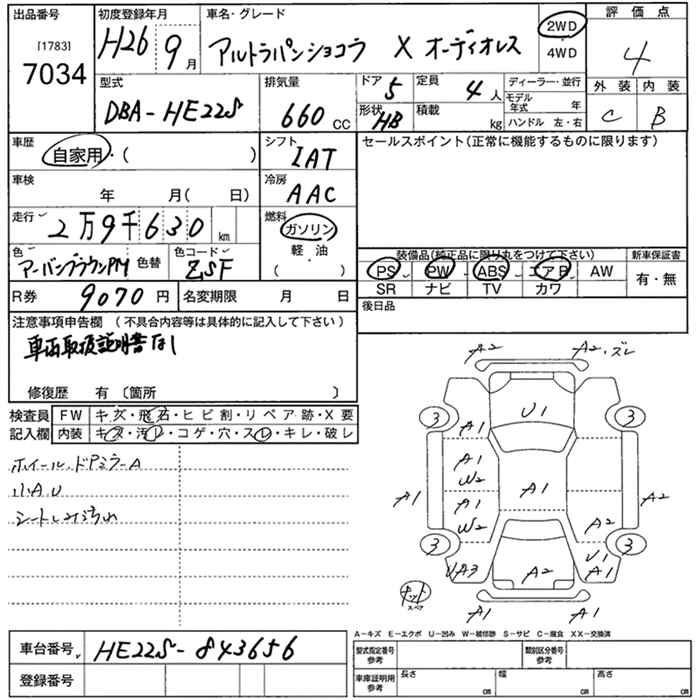 出品番号 初度登録年月 車名・グレード 評価点
[1783] 7034 H26 9月 アルトラパンショコラ X オーディオレス 2WD 4WD 4
型式 DBA-HE22S 排気量 660 CC ドア 5 定員 4 人 ディーラー・並行 外装 内装
形状 HB 積載 kg モデル年式 年 ハンドル 左・右 C B
車歴 自家用・( ) シフト IAT セールスポイント(正常に機能するものに限ります)
車検 年 月(日) 冷房 AAC
走行 2万9千630 km 燃料 ガソリン 軽油 ( )
色 アーバンブラウンPM 色替 色コード ZSF
装備品(純正品に限り丸をつけて下さい) 新車保証書
PS PW ABS エアB AW 有・無
SR ナビ TV カワ
R券 9070 円 名変期限 月 日 後日品
注意事項申告欄 (不具合内容等は具体的に記入して下さい)
車両取扱説明書なし
修復歴 有 〔箇所 〕
検査員 FW キズ・飛石・ヒビ割・リペア跡・X要
記入欄 内装 キズ・汚レ・コゲ・穴・スレ・キレ・破レ
ホイール、ドアミラーA
小AU
シートしみ汚れ
A2 A2,ズレ
U1
3 A1 3
A1 W2
A1 A1 A2
A1 W2 A2
3 U1 3
UA3 A2 A1
キット スペア
A1 A1
A-キズ E-エクボ U-凹み W-補修跡 S-サビ C-腐食 XX-交換済
車台番号 HE22S-843656 型式指定番号 参考 類別区分番号 参考
登録番号 車庫証明用 参考 長さ cm 幅 cm 高さ cm